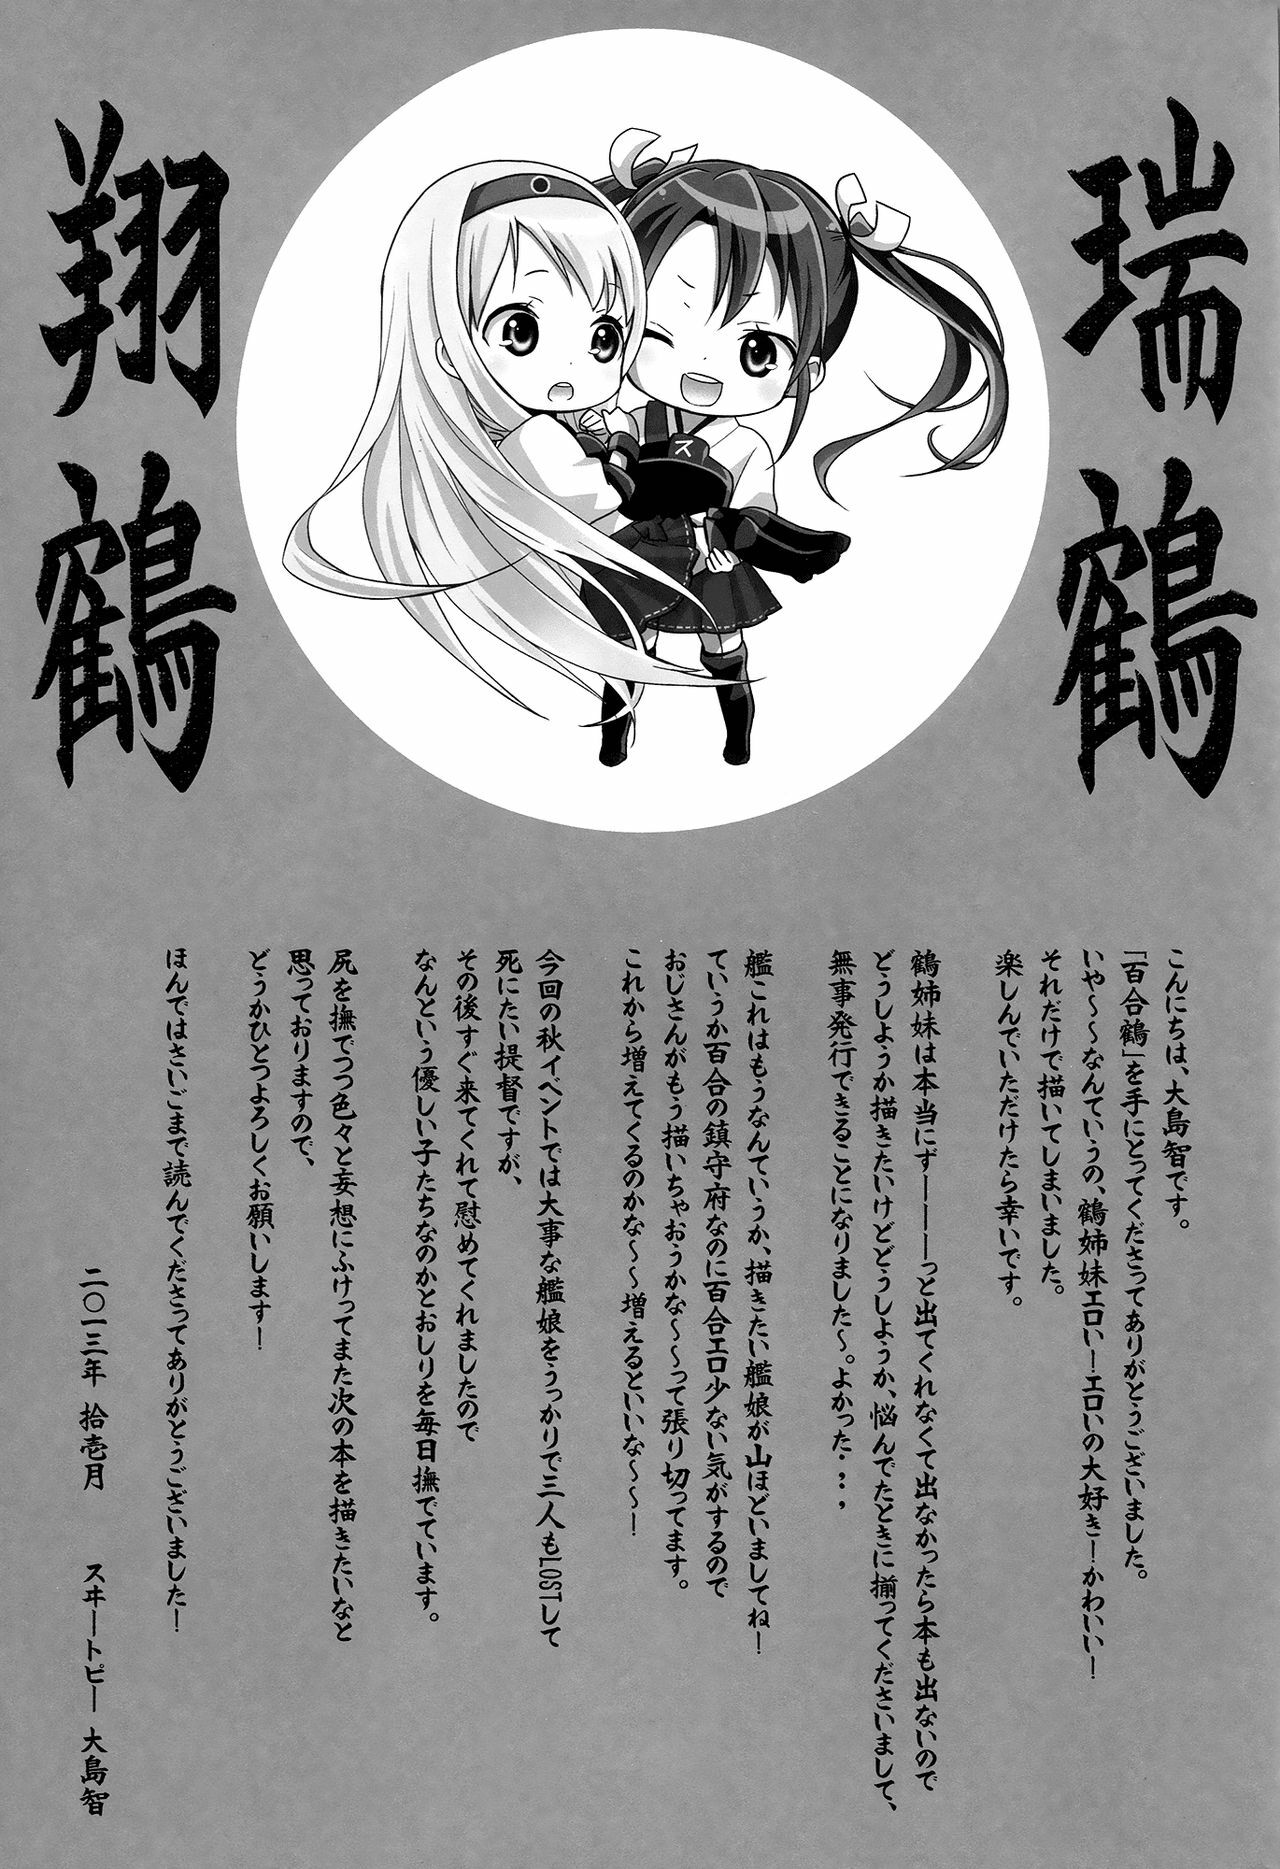 瑞鶴
翔鶴
ス
こんにちは、大島智です。
「百合鶴」を手にとってくださってありがとうございました。
いや～～なんていうの、鶴姉妹エロい！エロいの大好き！かわいい！
それだけで描いてしまいました。
楽しんでいただけたら幸いです。
鶴姉妹は本当にずーーーーっと出てくれなくて出なかったら本も出ないので
どうしようか描きたいけどどうしようか、悩んでたときに揃ってくださいまして、
無事発行できることになりました～。よかった・・・
艦これはもうなんていうか、描きたい艦娘が山ほどいましてね！
ていうか百合の鎮守府なのに百合エロ少ない気がするので
おじさんがもう描いちゃおうかな～～って張り切ってます。
これから増えてくるのかな～～増えるといいな～～！
今回の秋イベントでは大事な艦娘をうっかりで三人もLOSTして
死にたい提督ですが、
その後すぐ来てくれて慰めてくれましたので
なんという優しい子たちなのかとおしりを毎日撫でています。
尻を撫でつつ色々と妄想にふけってまた次の本を描きたいなと
思っておりますので、
どうかひとつよろしくお願いします！
ほんではさいごまで読んでくださってありがとうございました！
二〇一三年 拾壱月 スヰートピー 大島智